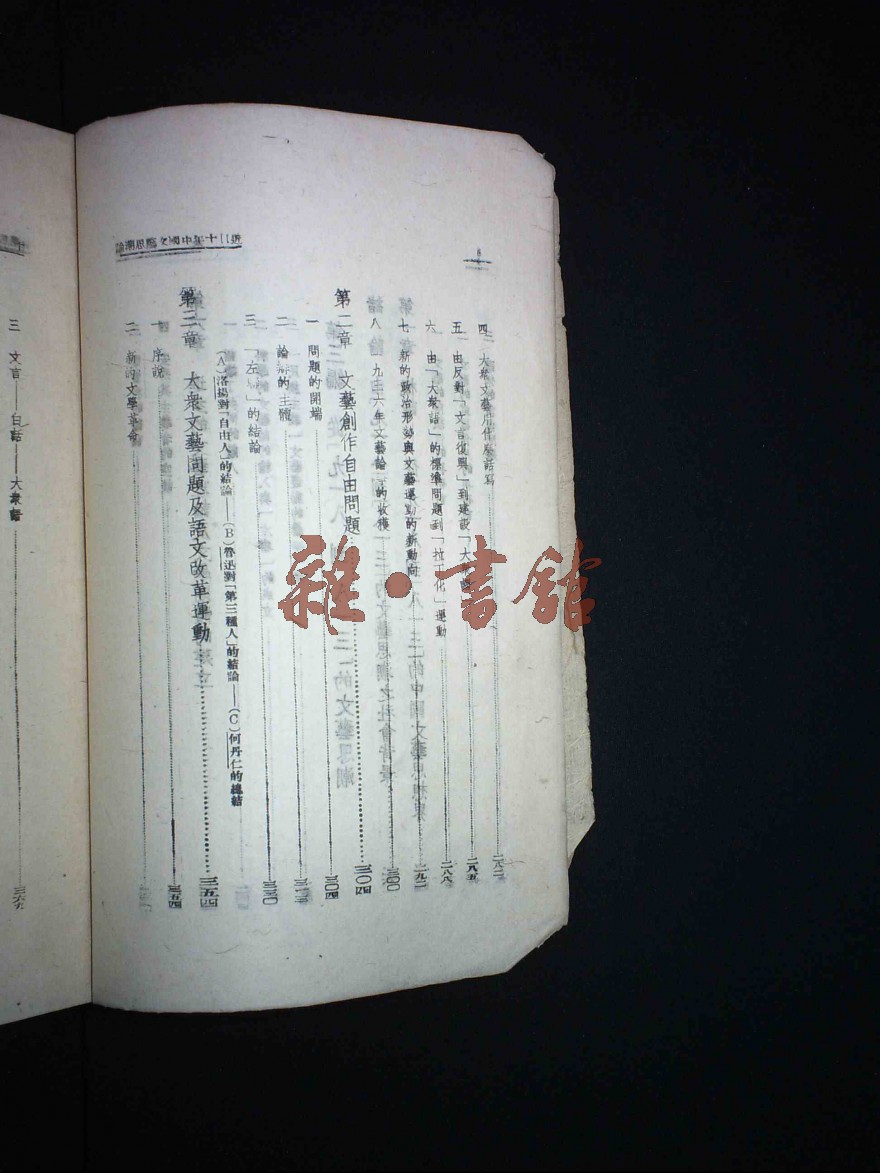 近二十年中國文藝思潮論
8
四 大衆文藝用什麽話寫……二八二
五 由反對「文言復興」到建設「大衆語」……二八五
六 由「大衆語」的標準問題到「拉丁化」運動……二八八
七 新的政治形勢與文藝運動的新動向……二九二
八 一九三六年文藝論爭的收穫……三〇〇
第二章 文藝創作自由問題……三〇四
一 問題的開端……三〇四
二 論辯的主體……三一三
三 「左聯」的結論……三三〇
(A)洛揚對「自由人」的結論——(B)魯迅對「第三種人」的結論——(C)何丹仁的總結
第三章 大衆文藝問題及語文改革運動……三五四
一 序說……三五四
二 新的文學革命
三 文言——白話——大衆語……三六六
雜·書館